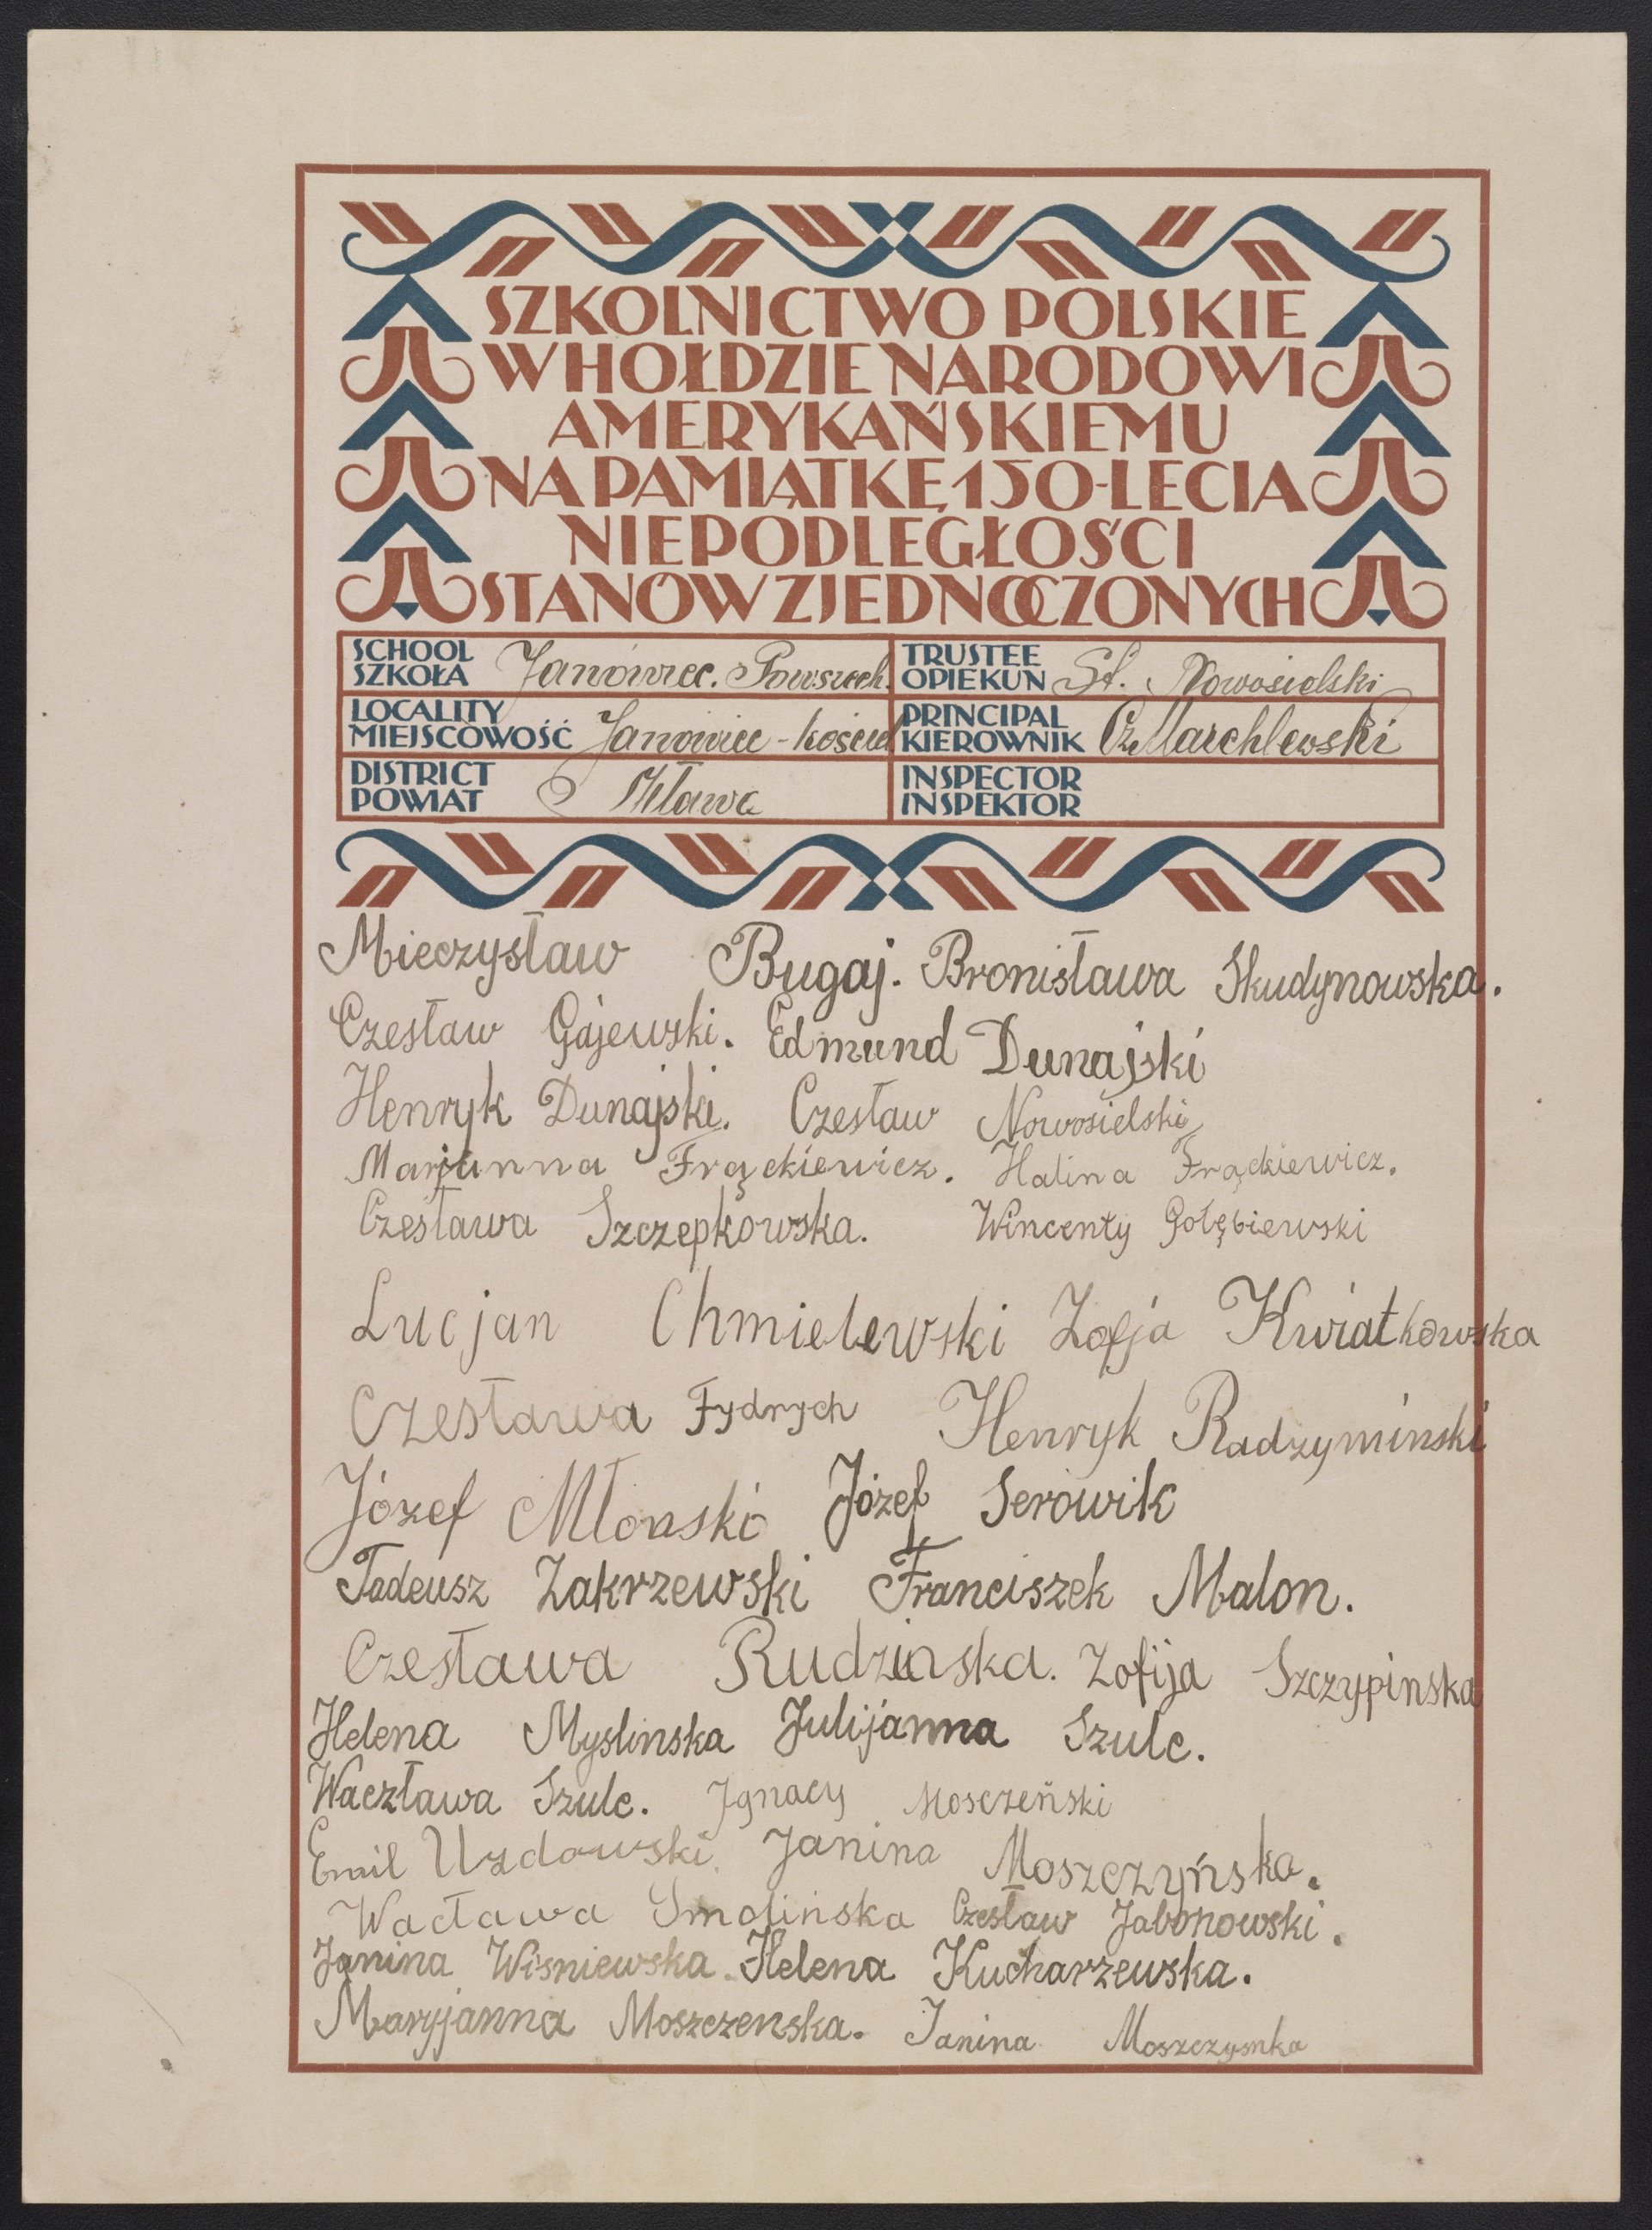 SZKOLNICTWO POLSKIE
W HOŁDZIE NARODOWI
AMERYKAŃSKIEMU
NA PAMIĄTKĘ 150-LECIA
NIEPODLEGŁOŚCI
STANÓW ZJEDNOCZONYCH
SCHOOL
SZKOŁA Janówiec. Powszech.
TRUSTEE
OPIEKUN St. Nowosielski
LOCALITY
MIEJSCOWOŚĆ Janowiec - Kościel
PRINCIPAL
KIEROWNIK Cz. Marchlewski
DISTRICT
POWIAT Mława
INSPECTOR
INSPEKTOR
Mieczysław Bugaj. Bronisława Skudynowska.
Czesław Gajewski. Edmund Dunajski
Henryk Dunajski. Czesław Nowosielski
Marjanna Frąckiewicz. Halina Frąckiewicz.
Czesława Szczepkowska. Wincenty Gołębiewski
Lucjan Chmielewski Zofja Kwiatkowska
Czesława Fydrych Henryk Radzyminski
Józef Młonski Józef Serowik
Tadeusz Zakrzewski Franciszek Malon.
Czesława Rudzinska. Zofija Szczypinska
Helena Myslinska Julijanna Szulc.
Waczława Szulc. Jgnacy Mosczeński
Emil Uzdowski. Janina Moszczyńska.
Wacława Smolińska Czesław Jabonowski.
Janina Wisniewska. Helena Kucharzewska.
Maryjanna Moszczenska. Janina Moszczysnka